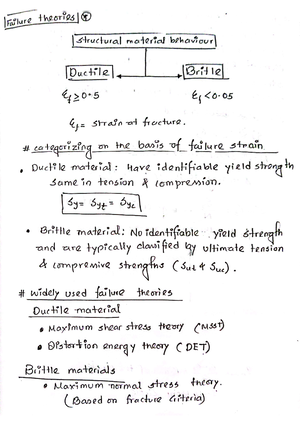 Failure theories
structural material behaviour
Ductile
Brittle
εf ≥ 0.5
εf < 0.05
εf = strain at fracture.
# categorizing on the basis of failure strain
• Ductile material: Have identifiable yield strength
same in tension & compression.
Sy = Syt = Syc
• Brittle material: No identifiable yield strength
and are typically classified by ultimate tension
& compressive strengths (Sut & Suc).
# widely used failure theories
Ductile material
• Maximum shear stress theory (MSST)
• Distortion energy theory (DET)
Brittle materials
• Maximum normal stress theory.
(Based on fracture criteria)